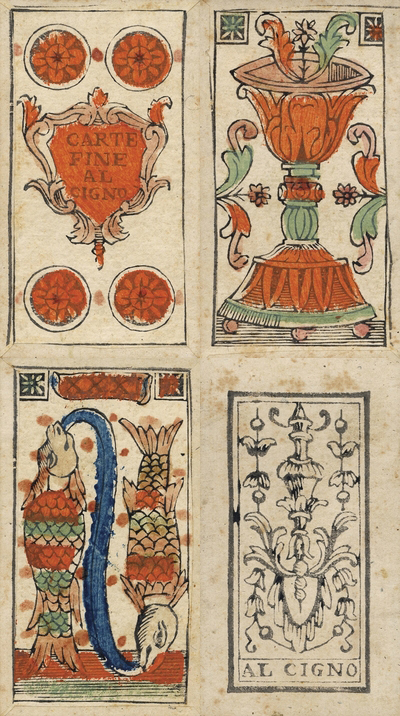 CARTE
FINE
AL
CIGNO
XXXI
AL CIGNO